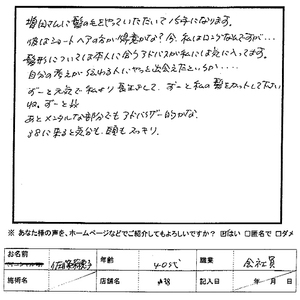 増田さんに髪の毛をやっていただいて15年になります。
彼はショートヘアの方が得意かな？今、私はロングなんですが…
髪形については本人に合うアドバイスが私には気に入ってます。
自分の考えが伝わる人にやっと出会えたというか……
ずーと元気で私より長生きして、ずーと私の髪をカットして下さい
ね。ずーと
あとメンタルな部分でもアドバイザー的かな。
に来ると気分も、頭もスッキリ。
※ あなた様の声を、ホームページなどでご紹介してもよろしいですか？ ☑はい □匿名で □ダメ
お名前 年齢 40代 職業 会社員
施術名 店舗名 記入日 年 月 日